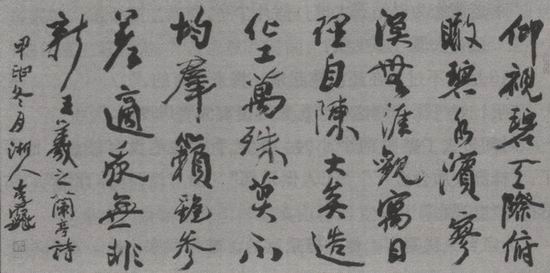 仰視碧天際俯
瞰碧水濱寥
漠無涯觀寓目
理自陳大矣造
化工萬殊莫不
均羣籟雖參
差適我無非
新 王羲之蘭亭詩
甲申冬月湘人李鐸